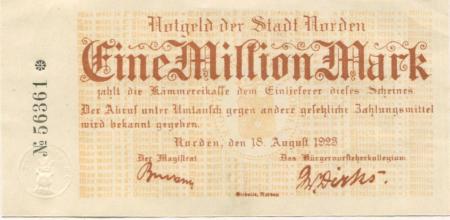 Notgeld der Stadt Norden
Eine Million Mark
zahlt die Kämmereikasse dem Einlieferer dieses Scheines.
Der Abruf unter Umtausch gegen andere gesetzliche Zahlungsmittel
wird bekannt gegeben.
Norden, den 18. August 1923
Der Magistrat Das Bürgervorsteherkollegium
Dirks.
Norden
№ 56361 *